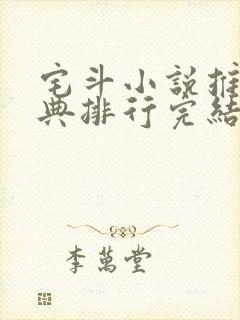 宅斗小說推
典排行完結
李萬堂